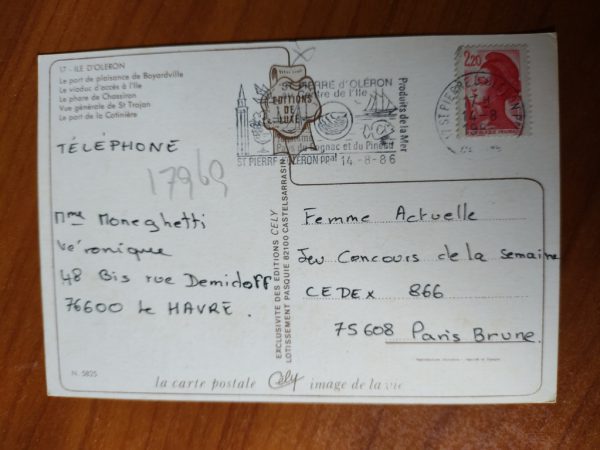 17 - ILE D'OLERON
Le port de plaisance de Boyardville
Le viaduc d'accès à l'Ile
Le phare de Chassiron
Vue générale de St Trojan
Le port de la Cotinière
TÉLÉPHONE
17969
Mme Moneghetti
Véronique
48 Bis rue Demidoff
76600 Le HAVRE.
N. 5825
EDITIONS DE LUXE
ST PIERRE d'OLÉRON
Centre de l'Ile
Produits de la Mer
Pays du Cognac et du Pineau
ST PIERRE OLERON ppal 14-8-86
2,20
14-8
EXCLUSIVITE DES EDITIONS CELY
LOTISSEMENT PASQUIE 82100 CASTELSARRASIN
Femme Actuelle
Jeu Concours de la semaine
CEDEX 866
75608 Paris Brune.
la carte postale Cely image de la vie